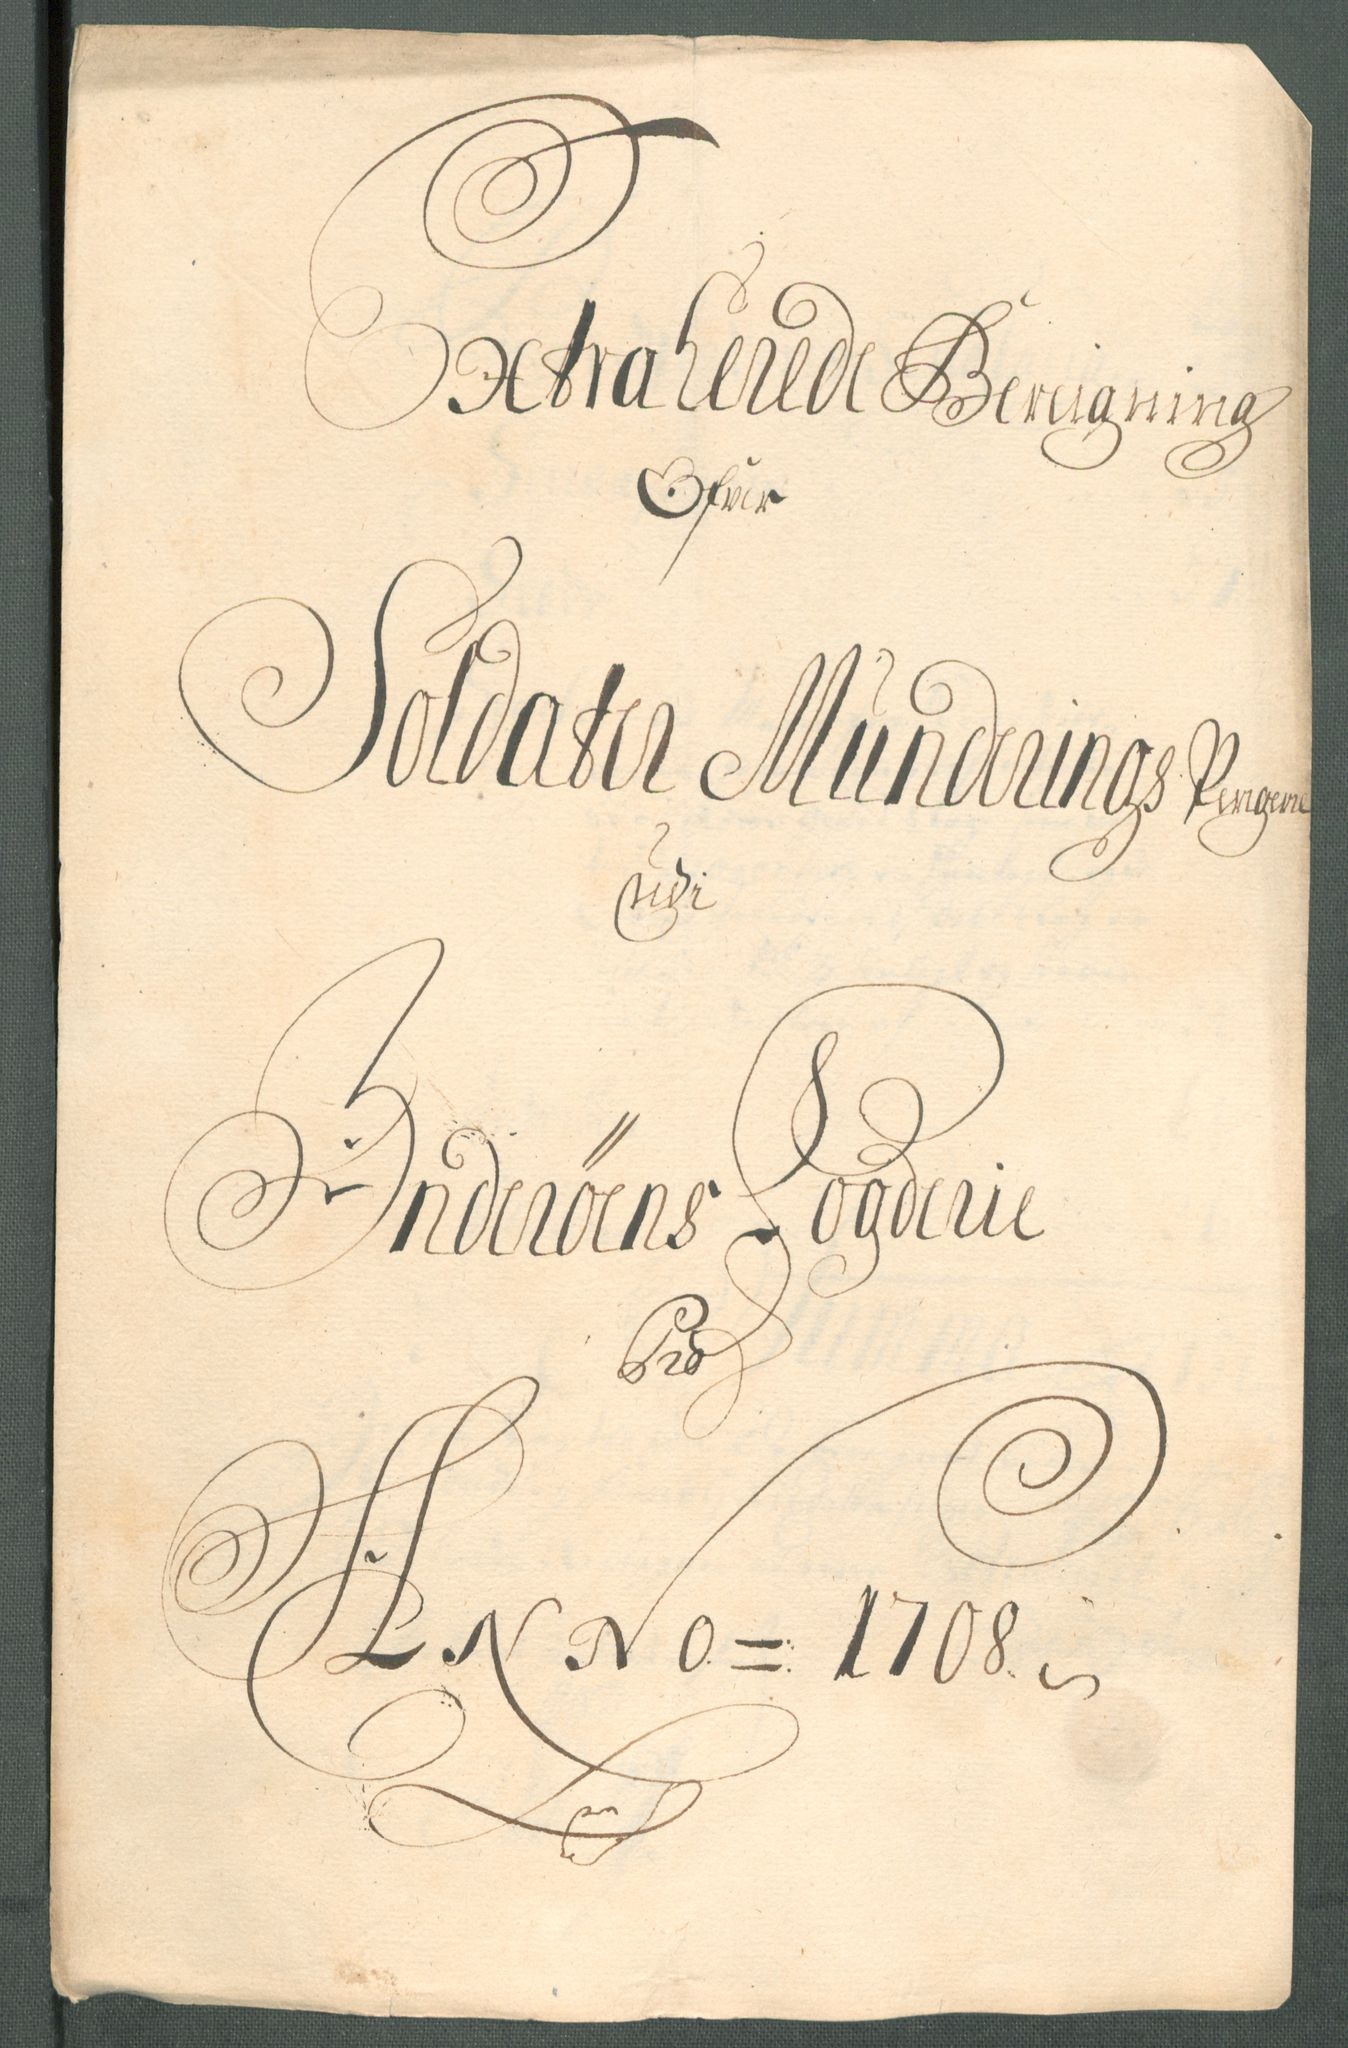 Extraherede Bereigning
Ofver
Soldater Munderings Pengene
udi
Inderöens Fogderie
Pro
ANNO = 1708.